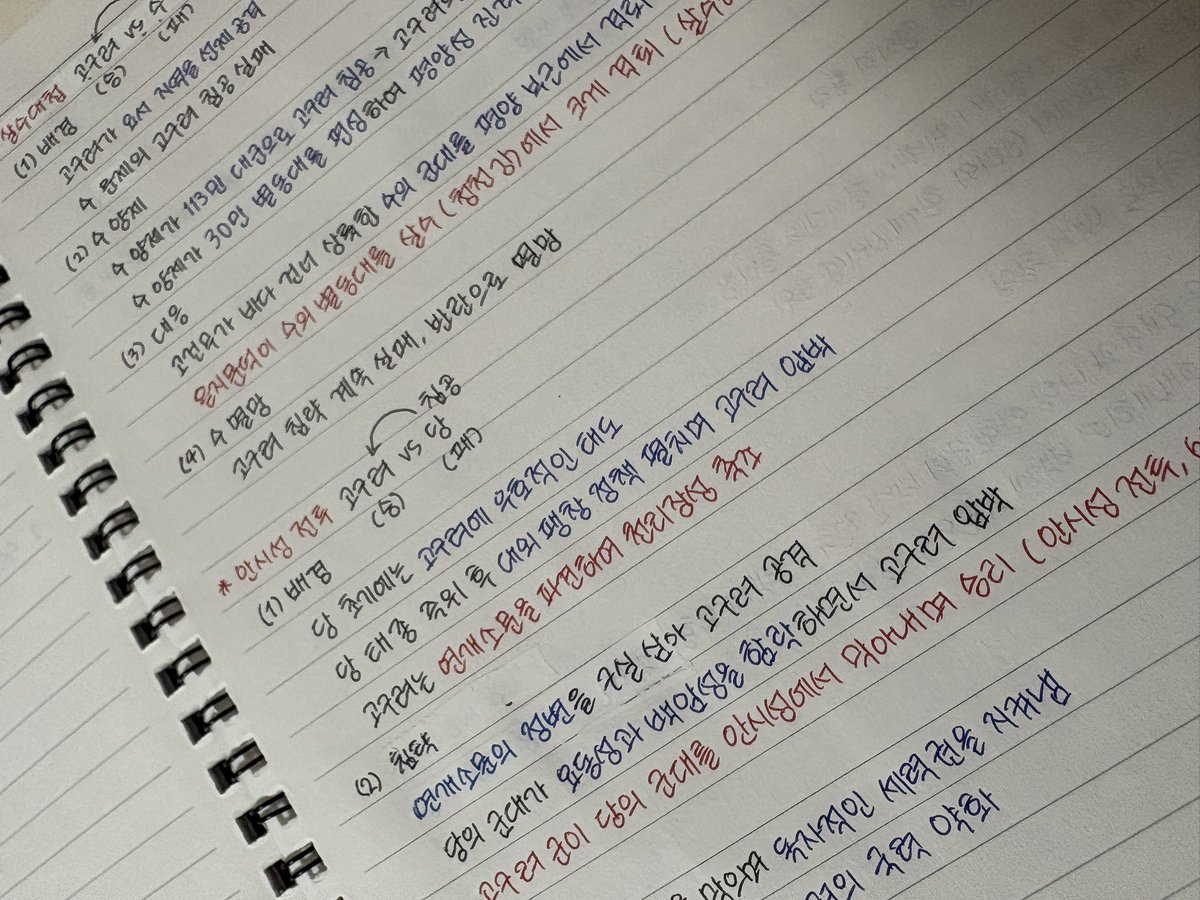 살수대첩 고구려 vs 수
(승) (패)
(1) 배경
고구려가 요서 지역을 선제 공격
수 문제의 고구려 침공 실패
(2) 수 양제
수 양제가 113만 대군으로 고구려 침공 → 고구려의
수 양제가 30만 별동대를 편성하여 평양성 진격
(3) 대응
고건무가 바다 건너 상륙한 수의 군대를 평양 부근에서 격퇴
을지문덕이 수의 별동대를 살수(청천강)에서 크게 격퇴 (살수
(4) 수 멸망
고구려 침략 계속 실패, 반란으로 멸망
침공
* 안시성 전투 고구려 vs 당
(승) (패)
(1) 배경
당 초기에는 고구려에 우호적인 태도
당 태종 즉위 후 대외 팽창 정책 펼치며 고구려 압박
고구려는 연개소문을 파견하여 천리장성 축조
(2) 침략
연개소문의 정변을 구실 삼아 고구려 공격
당의 군대가 요동성과 백암성을 함락하면서 고구려 압박
고구려 군이 당의 군대를 안시성에서 막아내며 승리 (안시성 전투, 6
막으며 독자적인 세력권을 지켜냄
의 국력 약화